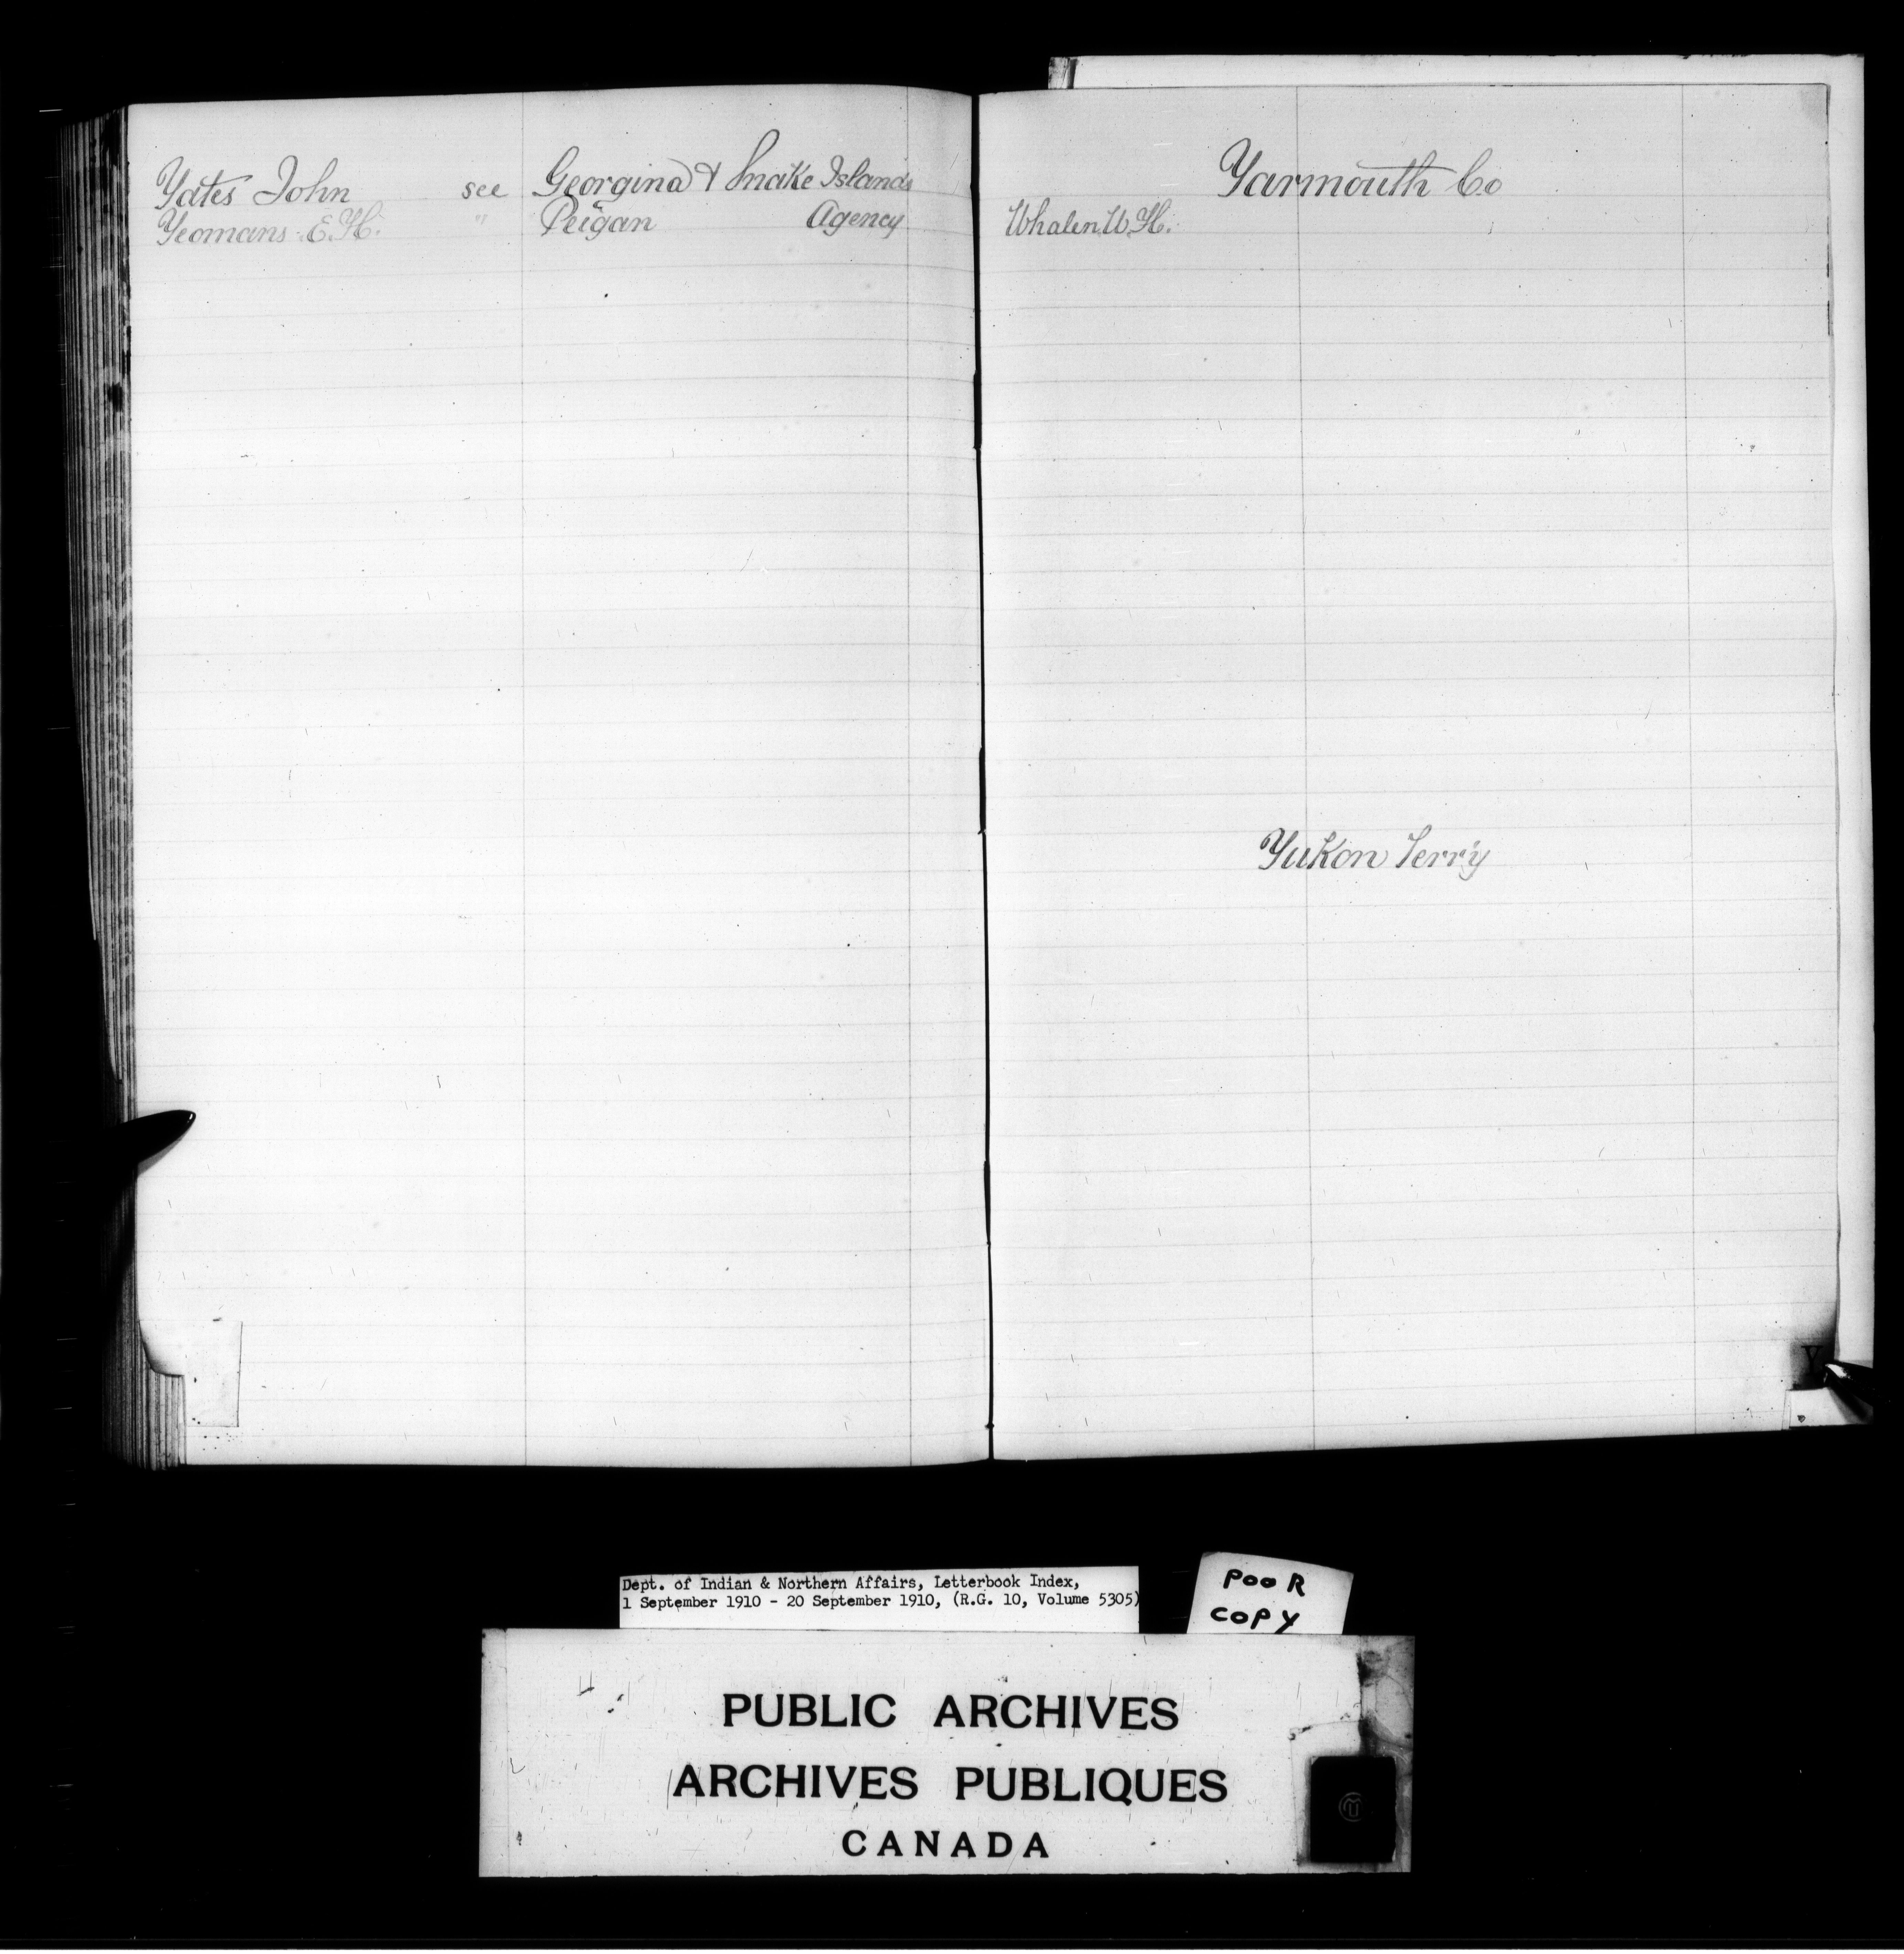 Yates John see Georgina & Snake Islands
Yeomans E.H. " Peigan Agency
Yarmouth Co
Whalen W.H.
Yukon Terr'y
Y
Dept. of Indian & Northern Affairs, Letterbook Index,
1 September 1910 - 20 September 1910, (R.G. 10, Volume 5305)
POOR
COPY
PUBLIC ARCHIVES
ARCHIVES PUBLIQUES
CANADA